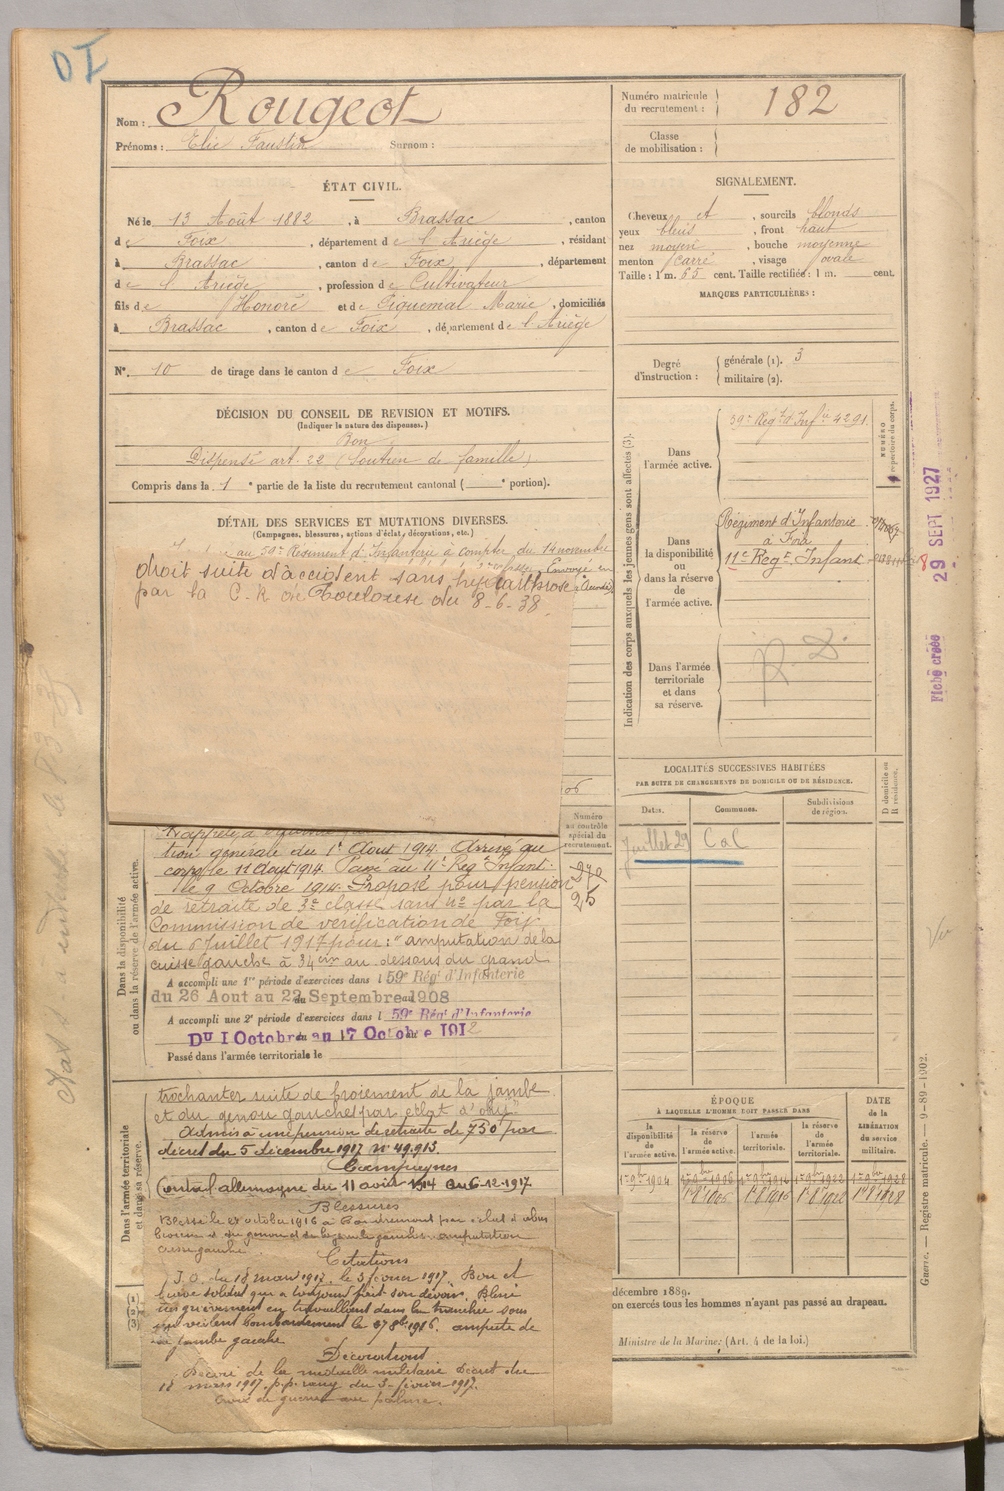 Nom : Rougeot
Prénoms : Elie Faustin Surnom :
ÉTAT CIVIL.
Né le 13 Août 1882, à Brassac, canton
de Foix, département de l'Ariège, résidant
à Brassac, canton de Foix, département
de l'Ariège, profession de Cultivateur
fils de Honoré et de Piquemal Marie, domiciliés
à Brassac, canton de Foix, département de l'Ariège
N° 10 de tirage dans le canton de Foix
DÉCISION DU CONSEIL DE REVISION ET MOTIFS.
(Indiquer la nature des dispenses.)
Bon
Dispensé art. 22 (Soutien de famille)
Compris dans la 1e partie de la liste du recrutement cantonal ( e portion).
DÉTAIL DES SERVICES ET MUTATIONS DIVERSES.
(Campagnes, blessures, actions d'éclat, décorations, etc.)
au 59e Régiment d'Infanterie à compter du 14 novembre
Envoyé en
droit suite d'accident sans hydarthrose
par la C. R de Toulouse du 8-6-38
06
Dans la disponibilité
ou dans la réserve de l'armée active.
tion générale du 1er Aout 1914. Arrivé au
corps le 11 Aout 1914. Passé au 11e Régt Infant.
le 9 Octobre 1914. Proposé pour pension
de retraite de 3e classe sans No par la
Commission de vérification de Foix
du 6 Juillet 1917 pour : "amputation de la
cuisse gauche à 34 cm au dessous du grand
A accompli une 1re période d'exercices dans l 59e Régt d'Infanterie
du 26 Aout au 22 Septembre 1908
A accompli une 2e période d'exercices dans l 59e Régt d'Infanterie
Du 1 Octobre au 17 Octobre 1912
Passé dans l'armée territoriale le
Dans l'armée territoriale
et dans sa réserve.
trochanter suite de broiement de la jambe
et du genou gauches par éclat d'obus"
Admis à une pension de retraite de 750f par
décret du 5 décembre 1917 No 49.913.
Campagnes
Contre l'allemagne du 11 août 1914 au 6-12-1917
Blessures
Blessé le 27 octobre 1916 à par éclat d'obus
du genou et de la jambe gauches. amputation
cuisse gauche
Citations
J.O. du 18 mars 1917. le 3 février 1917. Bon et
brave soldat qui a toujours fait son devoir. Blessé
très grièvement en travaillant dans la tranchée sous
un violent bombardement le 27 8bre 1916. amputé de
la jambe gauche
Décorations
Décoré de la médaille militaire Décret du
18 mars 1917. p.p. rang du 3 février 1917.
Croix de guerre avec palme.
(1)
(2)
(3)
Numéro matricule
du recrutement : 182
Classe
de mobilisation :
SIGNALEMENT.
Cheveux et, sourcils blonds
yeux bleus, front haut
nez moyen, bouche moyenne
menton carré, visage ovale
Taille : 1 m. 65 cent. Taille rectifiée : 1 m. cent.
MARQUES PARTICULIÈRES :
Degré
d'instruction :
générale (1). 3
militaire (2).
Indication des corps auxquels les jeunes gens sont affectés (3).
NUMÉRO
répertoire du corps.
Dans
l'armée active.
59e Régt d'Infie 4291
Dans
la disponibilité
ou
dans la réserve
de
l'armée active.
Régiment d'Infanterie
à Foix
11e Régt Infant
Dans l'armée
territoriale
et dans
sa réserve.
R. D.
LOCALITÉS SUCCESSIVES HABITÉES
PAR SUITE DE CHANGEMENTS DE DOMICILE OU DE RÉSIDENCE.
Dates. Communes. Subdivisions
de région.
D domicile ou
R résidence.
juillet 29 CaC
Numéro
au contrôle
spécial du
recrutement.
270
25
ÉPOQUE
À LAQUELLE L'HOMME DOIT PASSER DANS
la
disponibilité
de
l'armée active.
la réserve
de
l'armée active.
l'armée
territoriale.
la réserve
de
l'armée
territoriale.
DATE
de la
LIBÉRATION
du service
militaire.
1er 9bre 1904
décembre 1889.
on exercés tous les hommes n'ayant pas passé au drapeau.
Ministre de la Marine; (Art. 4 de la loi.)
Fiche créée 29 SEPT 1927
Guerre. — Registre matricule. — 9-89-1902.